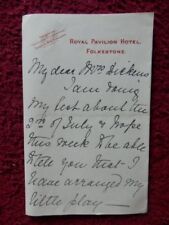 ROYAL PAVILION HOTEL,
FOLKESTONE.
My dear Mrs Dickens
I am doing
my best about the
2nd of July & hope
this week to be able
to tell you that I
have arranged my
little play —